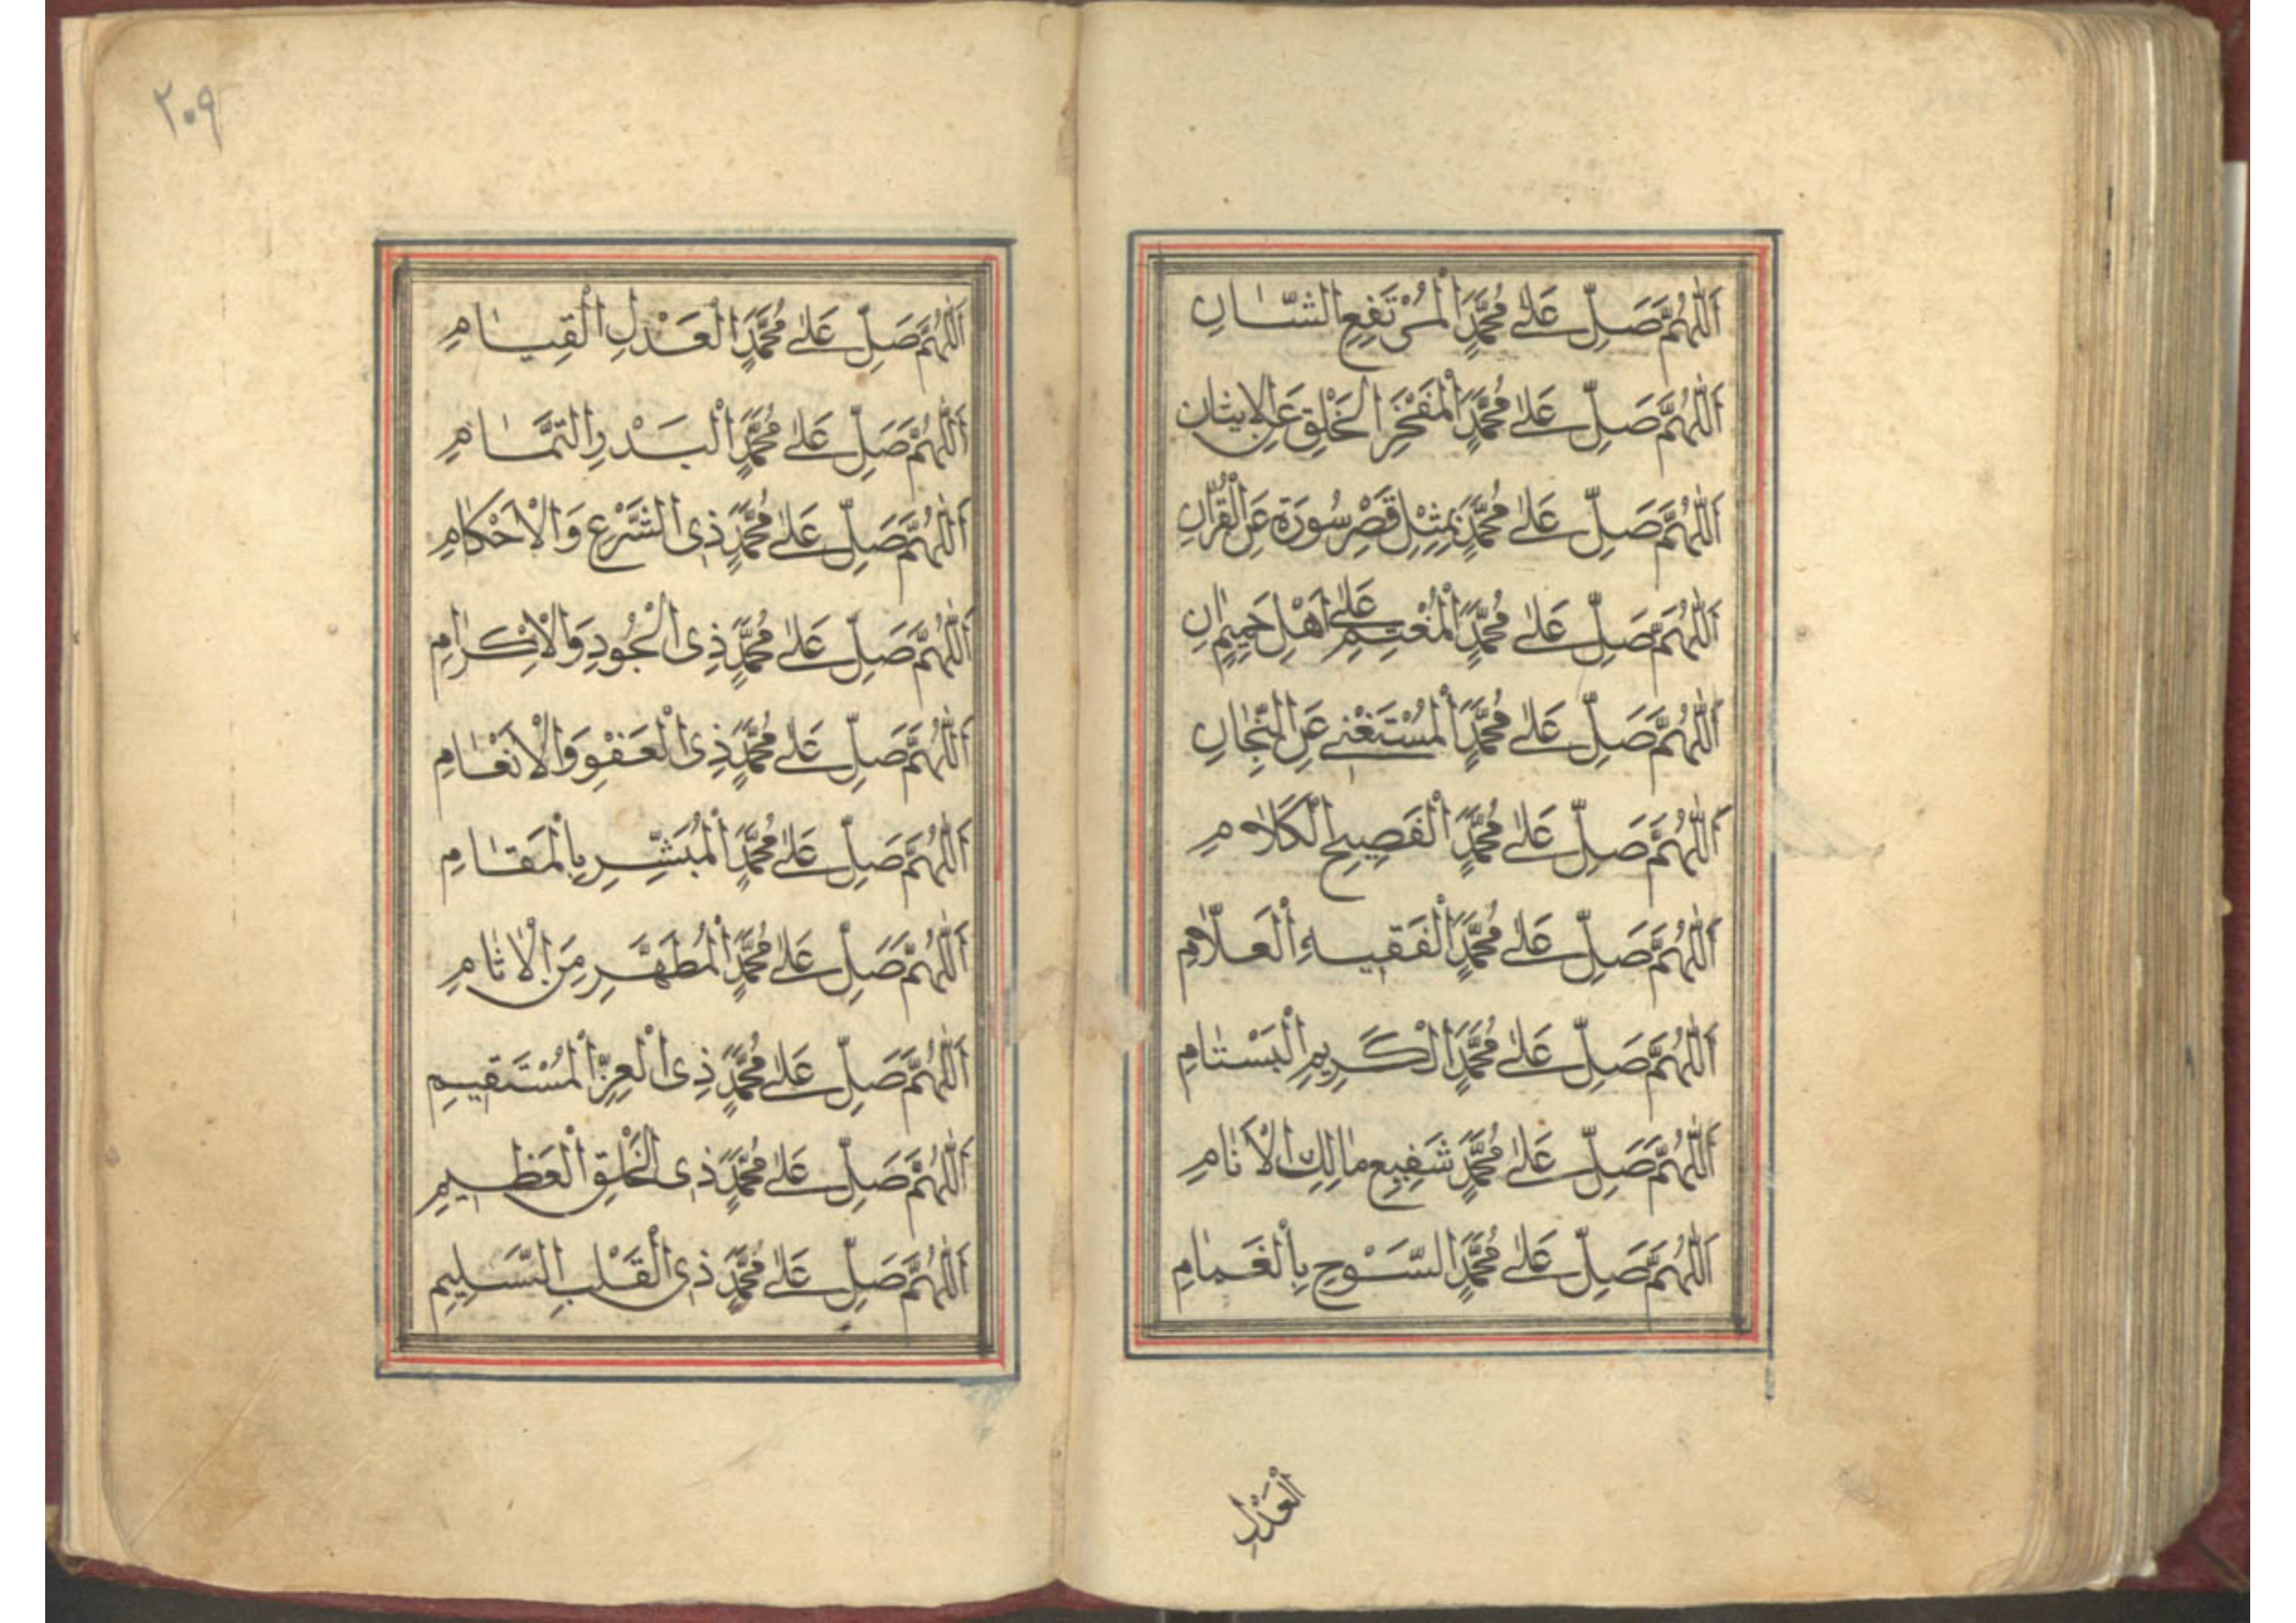 اَللّٰهُمَّ صَلِّ عَلٰى مُحَمَّدٍ الْمُرْتَفِعِ الشَّانِ
اَللّٰهُمَّ صَلِّ عَلٰى مُحَمَّدٍ الْمَفْخَرِ الْخَلْقِ
اَللّٰهُمَّ صَلِّ عَلٰى مُحَمَّدٍ بِمِثْلِ قَصْرِ سُورَةٍ عَنِ الْقُرْاٰنِ
اَللّٰهُمَّ صَلِّ عَلٰى مُحَمَّدٍ عَلٰى اَهْلِ
اَللّٰهُمَّ صَلِّ عَلٰى مُحَمَّدٍ الْمُسْتَغْنِى عَنِ
اَللّٰهُمَّ صَلِّ عَلٰى مُحَمَّدٍ الْفَصِيحِ الْكَلَامِ
اَللّٰهُمَّ صَلِّ عَلٰى مُحَمَّدٍ الْفَقِيهِ الْعَلَّامِ
اَللّٰهُمَّ صَلِّ عَلٰى مُحَمَّدٍ الْكَرِيمِ الْبَسْتَامِ
اَللّٰهُمَّ صَلِّ عَلٰى مُحَمَّدٍ شَفِيعِ مَالِكِ الْاَنَامِ
اَللّٰهُمَّ صَلِّ عَلٰى مُحَمَّدٍ السَّوْحِ بِالْغَمَامِ
الْعَدْلِ
٢٠٩
اَللّٰهُمَّ صَلِّ عَلٰى مُحَمَّدٍ الْعَدْلِ الْقِيَامِ
اَللّٰهُمَّ صَلِّ عَلٰى مُحَمَّدٍ الْبَدْرِ التَّمَامِ
اَللّٰهُمَّ صَلِّ عَلٰى مُحَمَّدٍ ذِى الشَّرْعِ وَالْاَحْكَامِ
اَللّٰهُمَّ صَلِّ عَلٰى مُحَمَّدٍ ذِى الْجُودِ وَالْاِكْرَامِ
اَللّٰهُمَّ صَلِّ عَلٰى مُحَمَّدٍ ذِى الْعَفْوِ وَالْاَنْعَامِ
اَللّٰهُمَّ صَلِّ عَلٰى مُحَمَّدٍ الْمُبَشِّرِ بِالْمَقَامِ
اَللّٰهُمَّ صَلِّ عَلٰى مُحَمَّدٍ الْمُطَهَّرِ مِنَ الْاٰثَامِ
اَللّٰهُمَّ صَلِّ عَلٰى مُحَمَّدٍ ذِى الْعِزِّ الْمُسْتَقِيمِ
اَللّٰهُمَّ صَلِّ عَلٰى مُحَمَّدٍ ذِى الْخُلْقِ الْعَظِيمِ
اَللّٰهُمَّ صَلِّ عَلٰى مُحَمَّدٍ ذِى الْقَلْبِ السَّلِيمِ